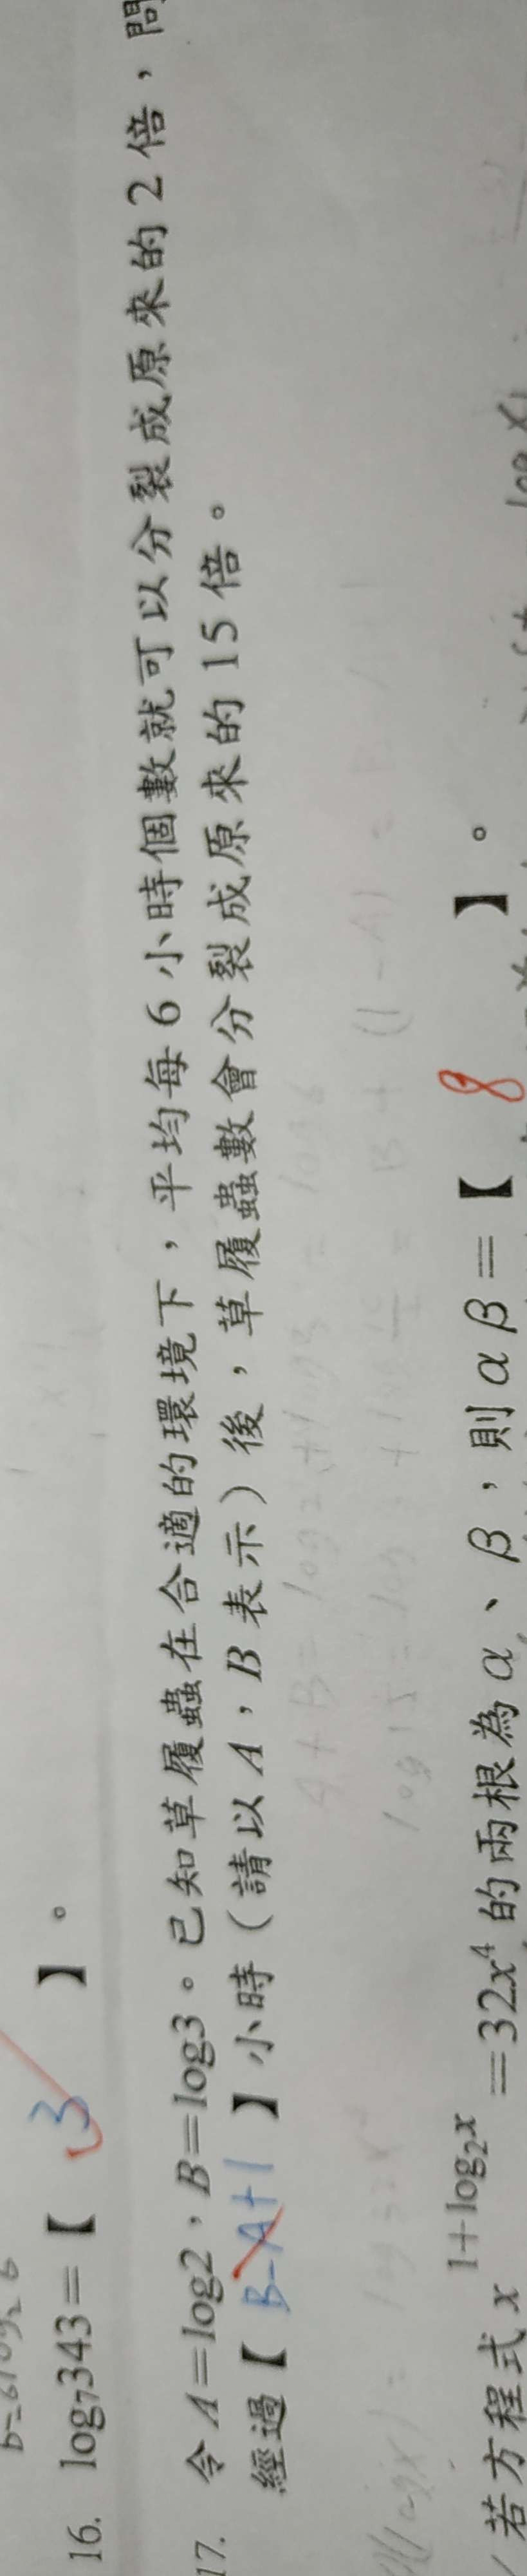 16. log₇343=【 3 】。
17. 令 A=log2,B=log3。已知草履蟲在合適的環境下,平均每 6 小時個數就可以分裂成原來的 2 倍,問
經過【 B-A+1 】小時(請以 A,B 表示)後,草履蟲數會分裂成原來的 15 倍。
A+B=log2+log3=log6
若方程式 x^(1+log₂x) =32x⁴ 的兩根為 α、β,則 αβ=【 8 】。